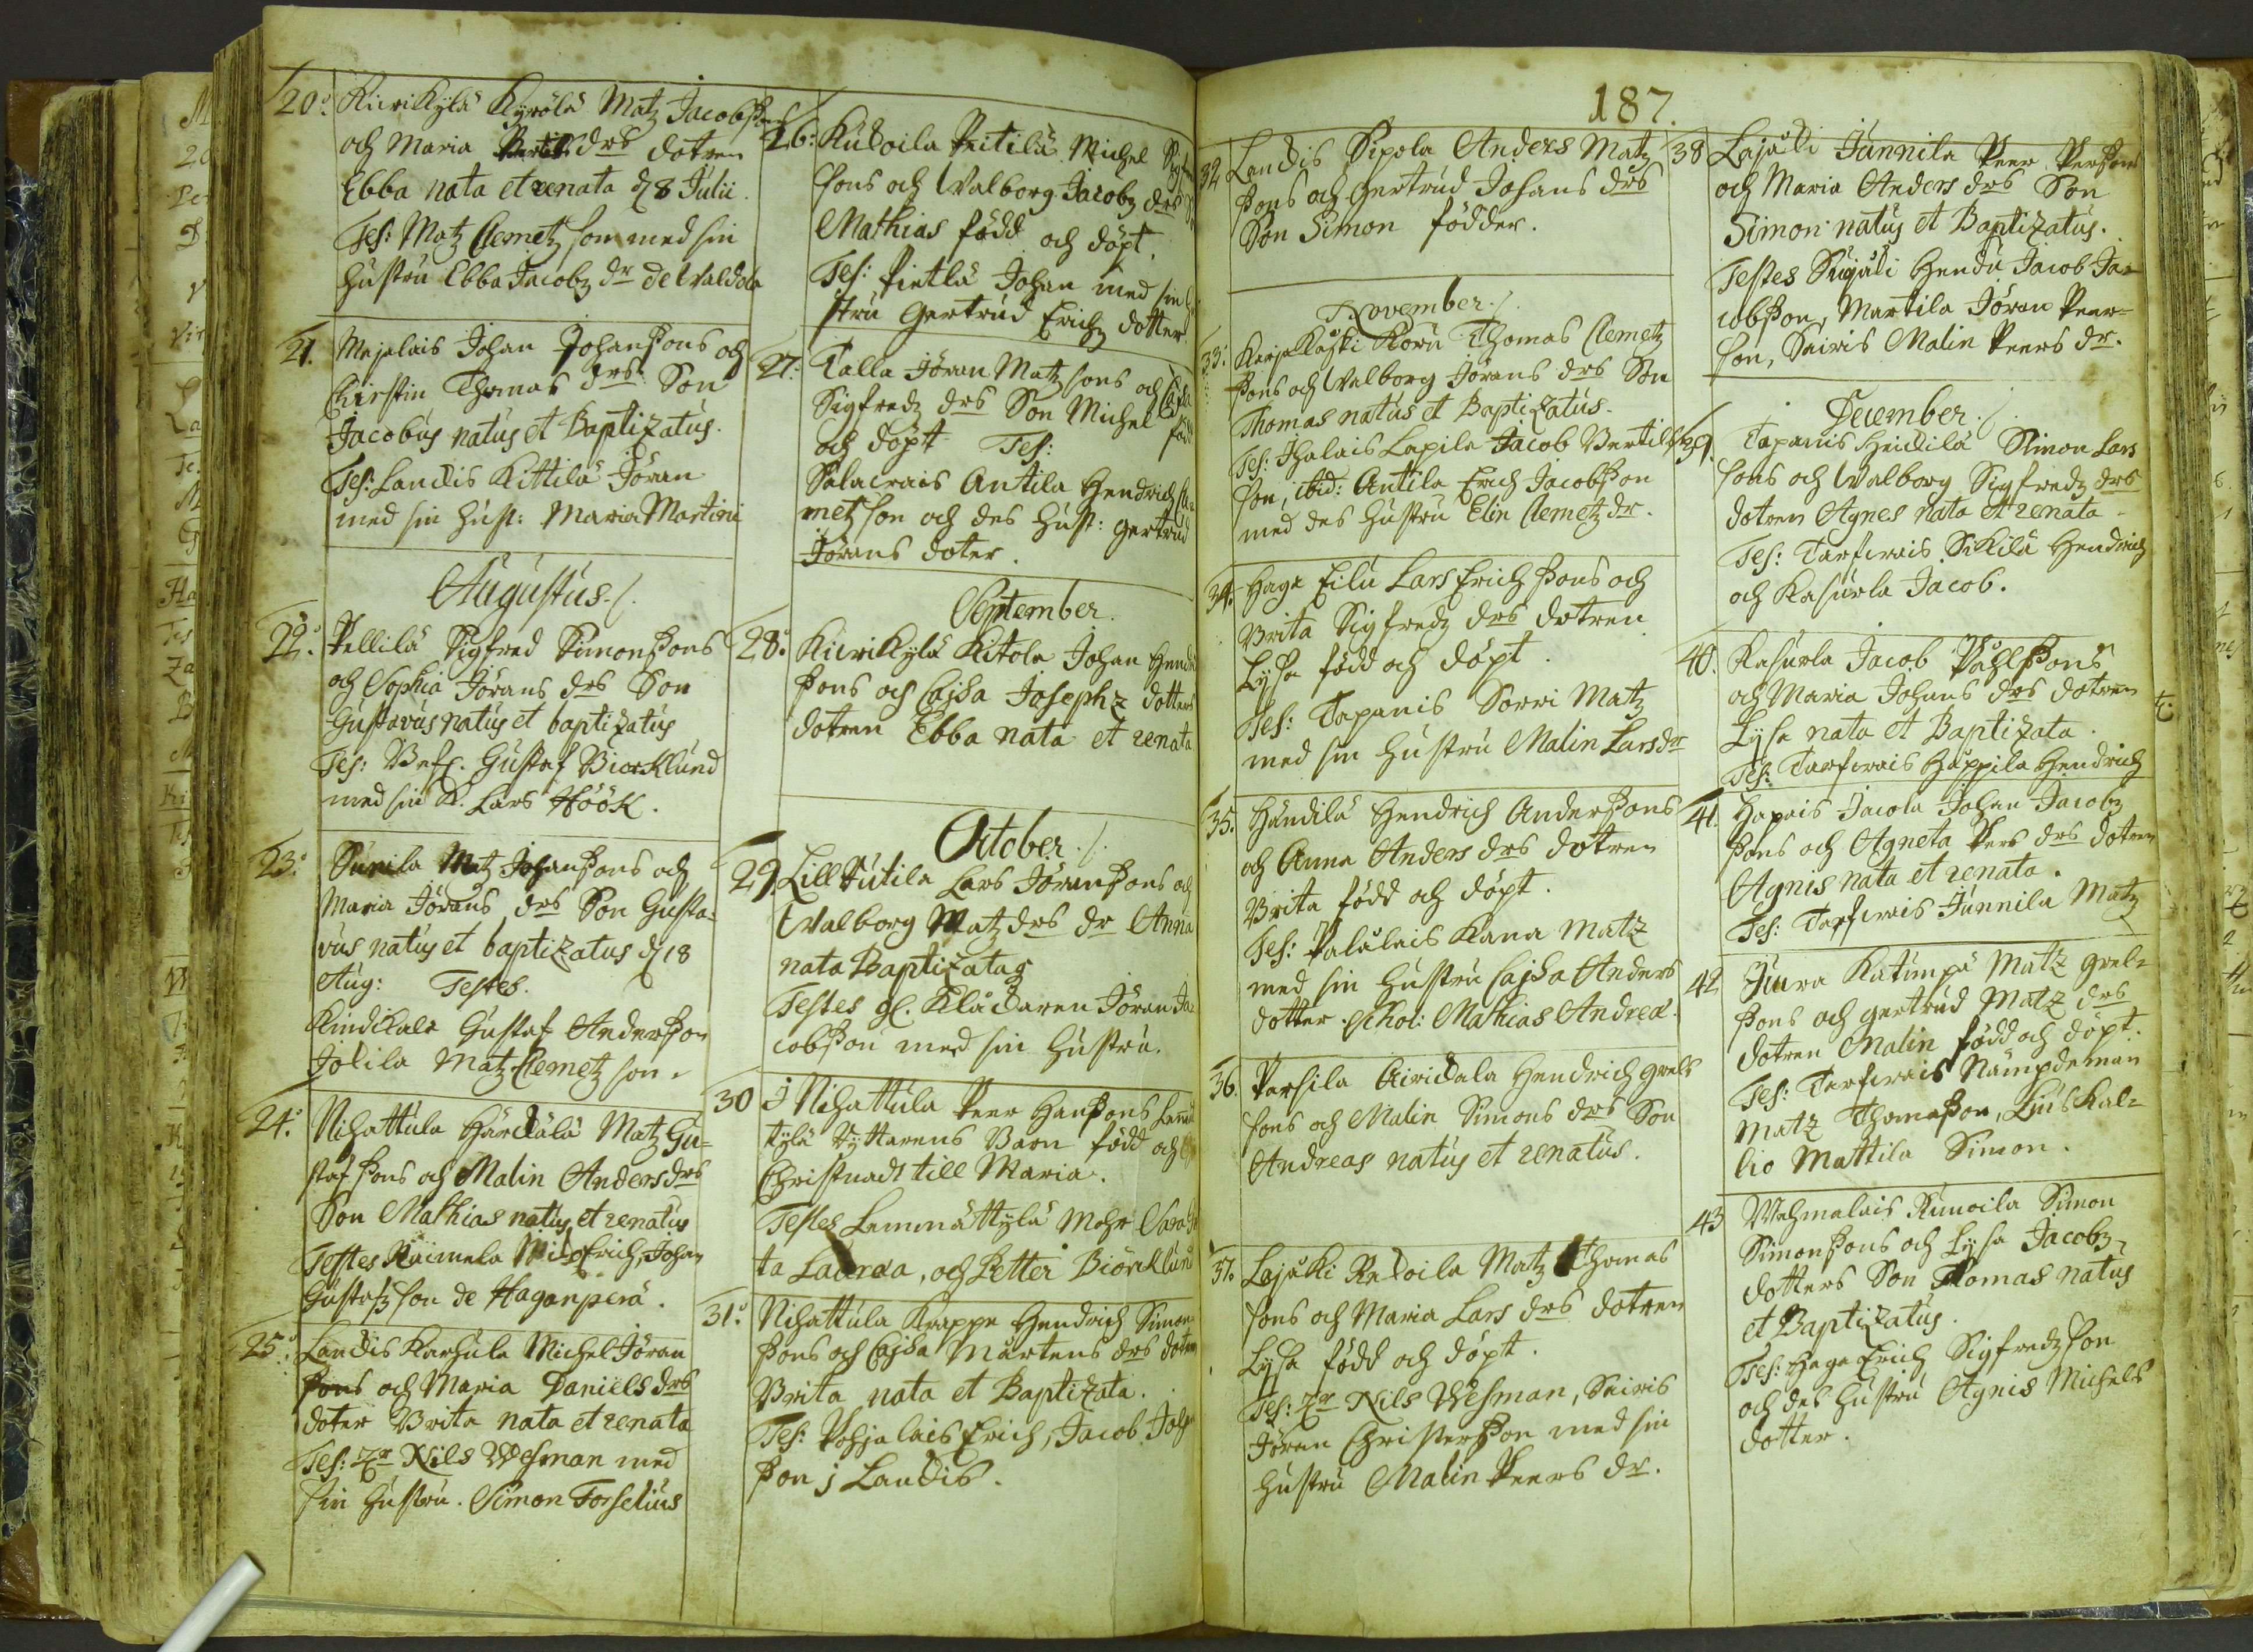 20. Kiwikylä Kyrölä Matz Jacobßons
och Maria drs dotren
Ebba nata et renata d 8 Julii.
Tes: Matz Clemetz son med sin
hustru Ebba Jacobz dr de Waldola
21. Majalais Johan Johanßons och
Chirstin Thomas drs Son
Jacobus natus et Baptizatus.
Tes: Landis Kittilä Jöran
med sin hust: Maria Martini
Augustus./.
22. Pellilä Sigfred Simonßons
och Sophia Jörans drs Son
Gustavus natus et baptizatus
Tes: Gustaf Biörklund
med sin Lars Höök.
23. Sunila Matz Johanßons och
Maria Jörans drs Son Gusta-
vus natus et baptizatus d 18
Aug: Testes.
Rindikala Gustaf Anderßon
Jokila Matz Clemetz son.
24. Nihattula Härkälä Matz Gu-
staf ßons och Malin Anders drs
Son Mathias natus et renatus
Testes Raimela Erich, Johan
Gustafz son de Haganperä.
25. Landis Karhula Michel Jöran
ßons och Maria Daniels drs
doter Brita nata et renata
Tes: Nils Wesman med
sin hustru. Simon Forselius
26. Kukoila Peitilä Michel
sons och Walborg Jacobz drs
Mathias född och döpt.
Tes: Pietlä Johan med sin
stru Gertrud Erichz dotter.
27. Talla Jöran Matz sons och
Sigfredz drs Son Michel född
och döpt Tes:
Salairais Antila Hendrich Cle-
metz son och des hust: Gertrud
Jörans doter.
September.
28. Kiwikylä Kitola Johan
ßons och Cajsa Josephz dotters
dotren Ebba nata et renata
October./.
29. Lill Putila Lars Jöranßons och
Walborg Matz drs dr Anna
nata Baptizatag
Testes gl. Klåckaren Jöran Ja-
cobßon med sin hustru.
30 i Nihattula Peer Hanßons
kylä Ryttarens Barn född och
Christnadt till Maria.
Testes Lammåttylä Mohr Sara
ta Lauraa, och Petter Biörklund
31. Nihattula Krappe Hendrich Simon
ßons och Cajsa Mårtens drs dotren
Brita nata et Baptizata.
Tes: Pohjalais Erich, Jacob
ßon j Landis.
187.
32 Landis Sipola Anders Matz
ßons och Gertrud Johans drs
Son Simon födder.
November./.
33. Karja Koru Thomas Clemetz
ßons och Walborg Jörans drs Son
Thomas natus et Baptizatus.
Tes: Ihalais Lapila Jacob Bertils
son, ibid: Antila Erich Jacobßon
med des hustru Elin Clemetz dr.
34. Haga Eilu Lars Erich ßons och
Brita Sigfredz drs dotren
Lysa född och döpt.
Tes: Tapanis Sorri Matz
med sin hustru Malin Lars dr
35. Händilä Hendrich Anderßons
och Anna Anders drs dotren
Brita född och döpt.
Tes: Palälais Kana Matz
med sin hustru Cajsa Anders
dotter. Schol: Mathias Andreæ.
36. Parsila Airikala Hendrich Grels
sons och Malin Simons drs Son
Andreas natus et renatus.
37. Lajåki Rekoila Matz Thomas
sons och Maria Lars drs dotren
Lysa född och döpt.
Tes: Nils Wesman, Sairis
Jöran Christerßon med sin
hustru Malin Peers dr.
38 Lajåki Junnila Peer Perßons
och Maria Anders drs Son
Simon natus et Baptizatus.
Testes Sujåki Hendu Jacob Ja-
cobßon, Martila Jöran Peer-
son, Sairis Malin Peers dr.
December./.
39. Tapanis Heickilä Simon Lars
sons och Walborg Sigfredz drs
dotren Agnes nata et renata.
Tes: Tarfwais Sikilä Hendrich
och Kasurla Jacob.
40. Kasurla Jacob Påhlßons
och Maria Johans drs dotren
Lysa nata et Baptizata.
Tes: Tarfwais Huppila Hendrich
41. Hapais Jacola Johan Jacobz
ßons och Agneta Pers drs dotren
Agnis nata et renata.
Tes: Tarfwais Junnila Matz
42 Juwa Katumpä Matz Grel-
ßons och Gertrud Matz drs
dotren Malin född och döpt.
Tes: Tarfwais Nämpdeman
Matz Thomaßon, Kal-
lio Mattila Simon.
43 Wehmalais Rumoila Simon
Simonßons och Lysa Jacobz
dotters Son Thomas natus
et Baptizatus.
Tes: Haga Erich Sigfredz son
och des hustru Agnis Michels
dotter.